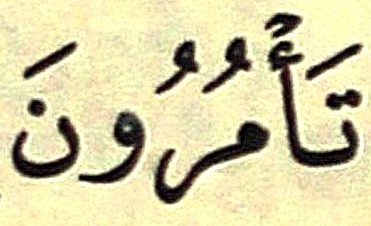 تَأْمُرُونَ